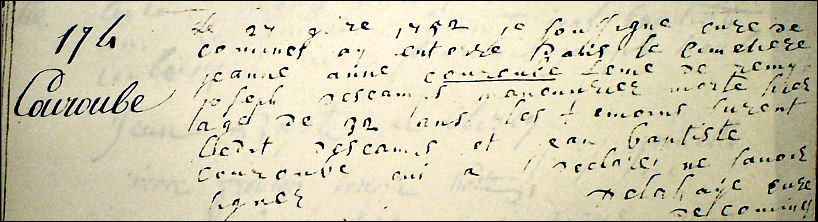 174
Couroube
Le 27 9bre 1752 je soussigne cure de
comines ay enterre dans le cimetiere
jeanne anne couroube feme de remy
joseph descamps manouvrier morte hier
age de 32 ans les temoins furent
ledit descamps et jean baptiste
couroube qui a declarer ne savoir
signer Delahaye cure
de comines